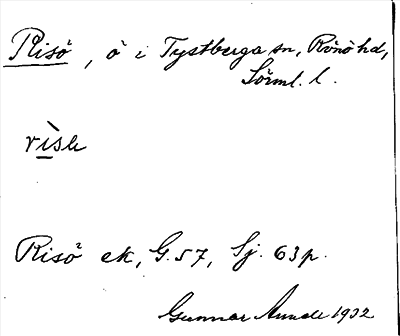 Risö, ö i Tystberga sn, Rönö hd,
Sörml. l.
rìsle
Risö ek, G. 57, Sj. 63 p.
Gunnar 1932